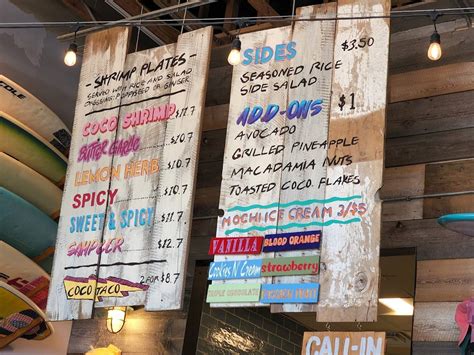 -SHRIMP PLATES-
SERVED WITH RICE AND SALAD
DRESSING: POPPYSEED OR GINGER
COCO SHRIMP
BUTTER GARLIC
LEMON HERB
SPICY
SWEET & SPICY
SAMPLER
COCO TACO 2 FOR $8.7
SIDES $3.50
SEASONED RICE
SIDE SALAD
ADD-ONS $1
AVOCADO
GRILLED PINEAPPLE
MACADAMIA NUTS
TOASTED COCO FLAKES
MOCHI ICE CREAM 3/$5
VANILLA BLOOD ORANGE
Cookies N' Cream strawberry
CALL-IN